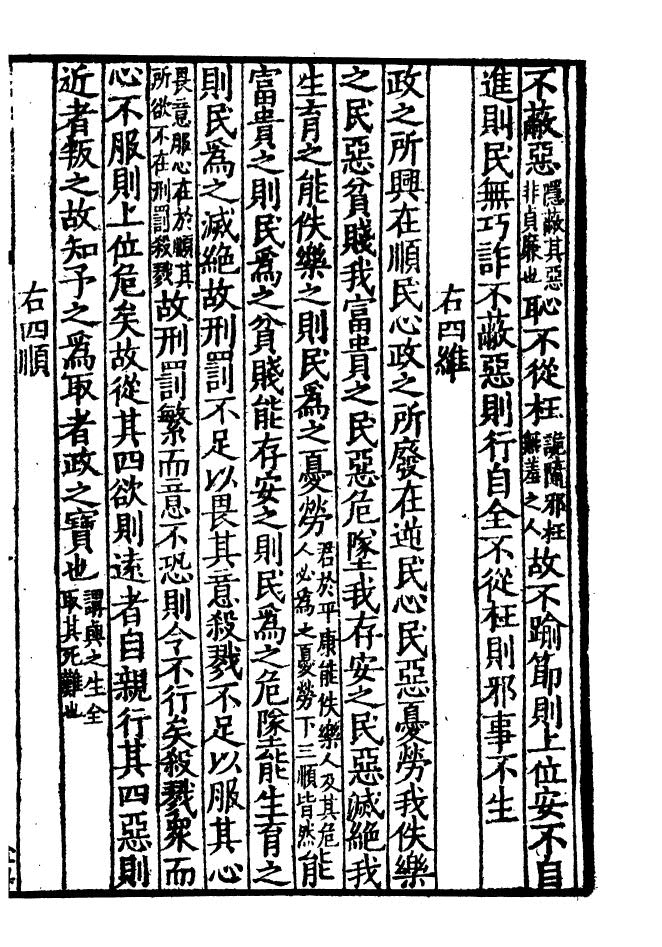 不蔽惡隱蔽其惡非貞廉也恥不從枉詭隨邪枉無羞之人故不踰節則上位安不自
進則民無巧詐不蔽惡則行自全不從枉則邪事不生
右四維
政之所興在順民心政之所廢在逆民心民惡憂勞我佚樂
之民惡貧賤我富貴之民惡危墜我存安之民惡滅絕我
生育之能佚樂之則民爲之憂勞君於平康能佚樂人及其危人必爲之憂勞下三順皆然能
富貴之則民爲之貧賤能存安之則民爲之危墜能生育之
則民爲之滅絕故刑罰不足以畏其意殺戮不足以服其心
畏意服心在於順其所欲不在刑罰殺戮故刑罰繁而意不恐則令不行矣殺戮衆而
心不服則上位危矣故從其四欲則遠者自親行其四惡則
近者叛之故知予之爲取者政之寶也謂與之生全取其死難也
右四順